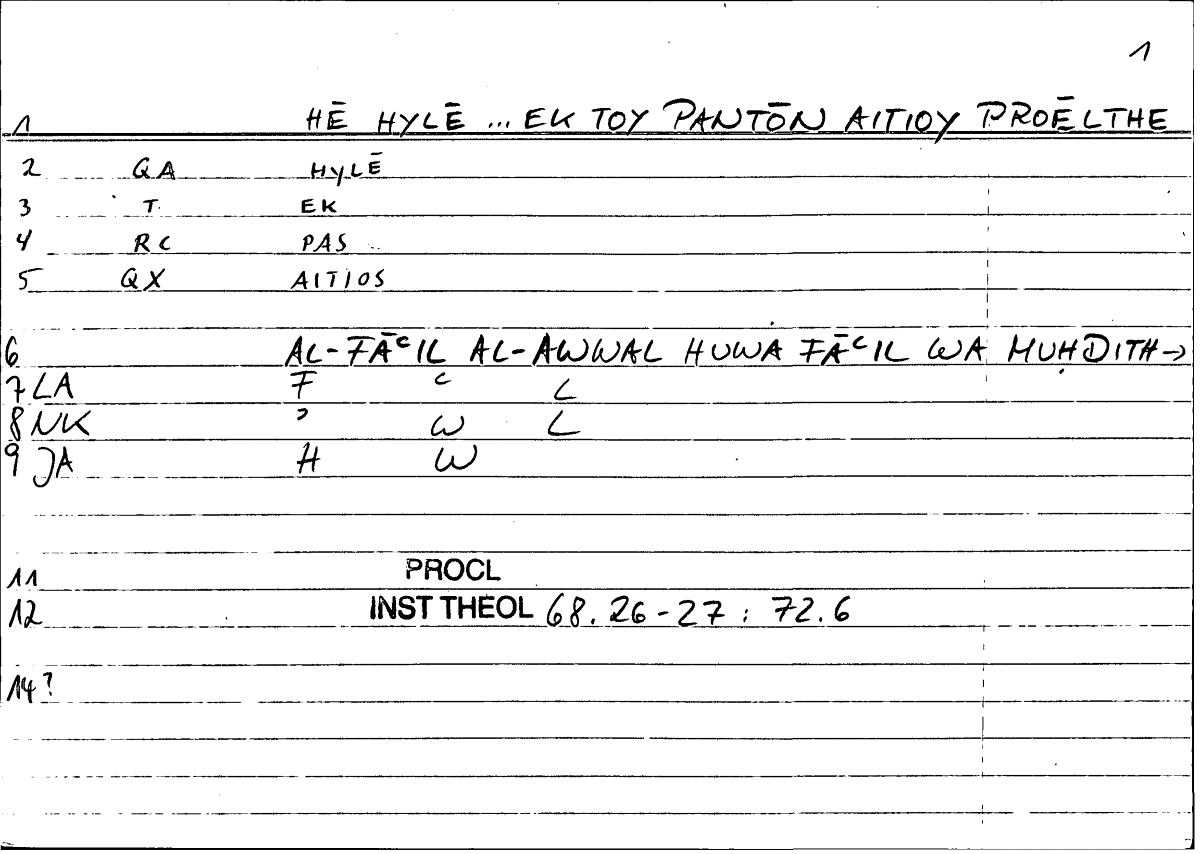 1
1 HĒ HYLĒ ... EK TOY PANTŌN AITIOY PROĒLTHE
2 QA HYLĒ
3 T EK
4 RC PAS
5 QX AITIOS
6 AL-FĀʿIL AL-AWWAL HUWA FĀʿIL WA MUḤDITH→
7 LA F ʿ L
8 NK ʾ W L
9 JA H W
11 PROCL
12 INST THEOL 68.26-27 : 72.6
14?